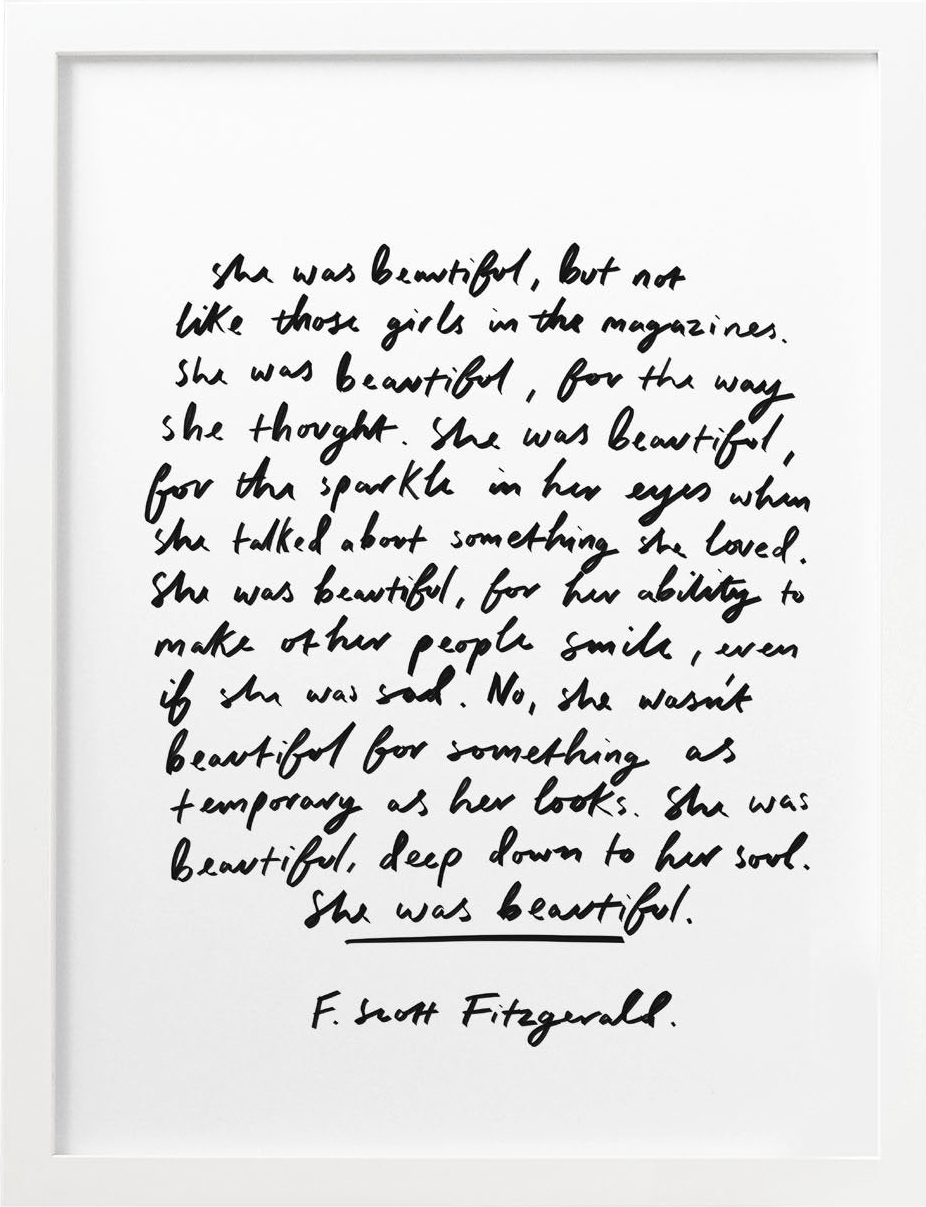 She was beautiful, but not
like those girls in the magazines.
She was beautiful, for the way
she thought. She was beautiful,
for the sparkle in her eyes when
she talked about something she loved.
She was beautiful, for her ability to
make other people smile, even
if she was sad. No, she wasn't
beautiful for something as
temporary as her looks. She was
beautiful, deep down to her soul.
She was beautiful.
F. Scott Fitzgerald.